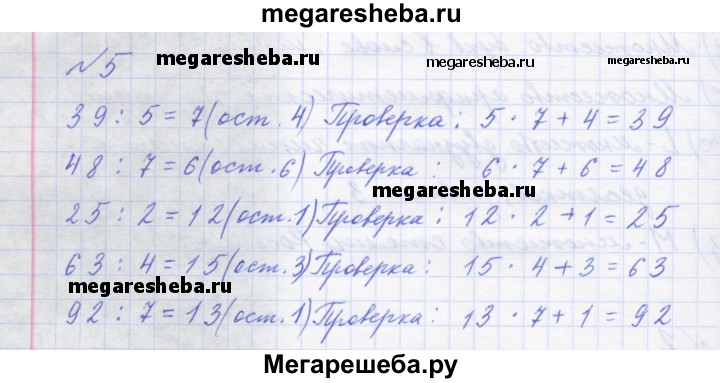 megaresheba.ru
№5
megaresheba.ru megaresheba.ru
39 : 5 = 7 (ост. 4) Проверка : 5 · 7 + 4 = 39
48 : 7 = 6 (ост. 6) Проверка : 6 · 7 + 6 = 48
25 : 2 = 12 (ост. 1) Проверка : 12 · 2 + 1 = 25
63 : 4 = 15 (ост. 3) Проверка : 15 · 4 + 3 = 63
megaresheba.ru megaresheba.ru
92 : 7 = 13 (ост. 1) Проверка : 13 · 7 + 1 = 92
Мегарешеба.ру